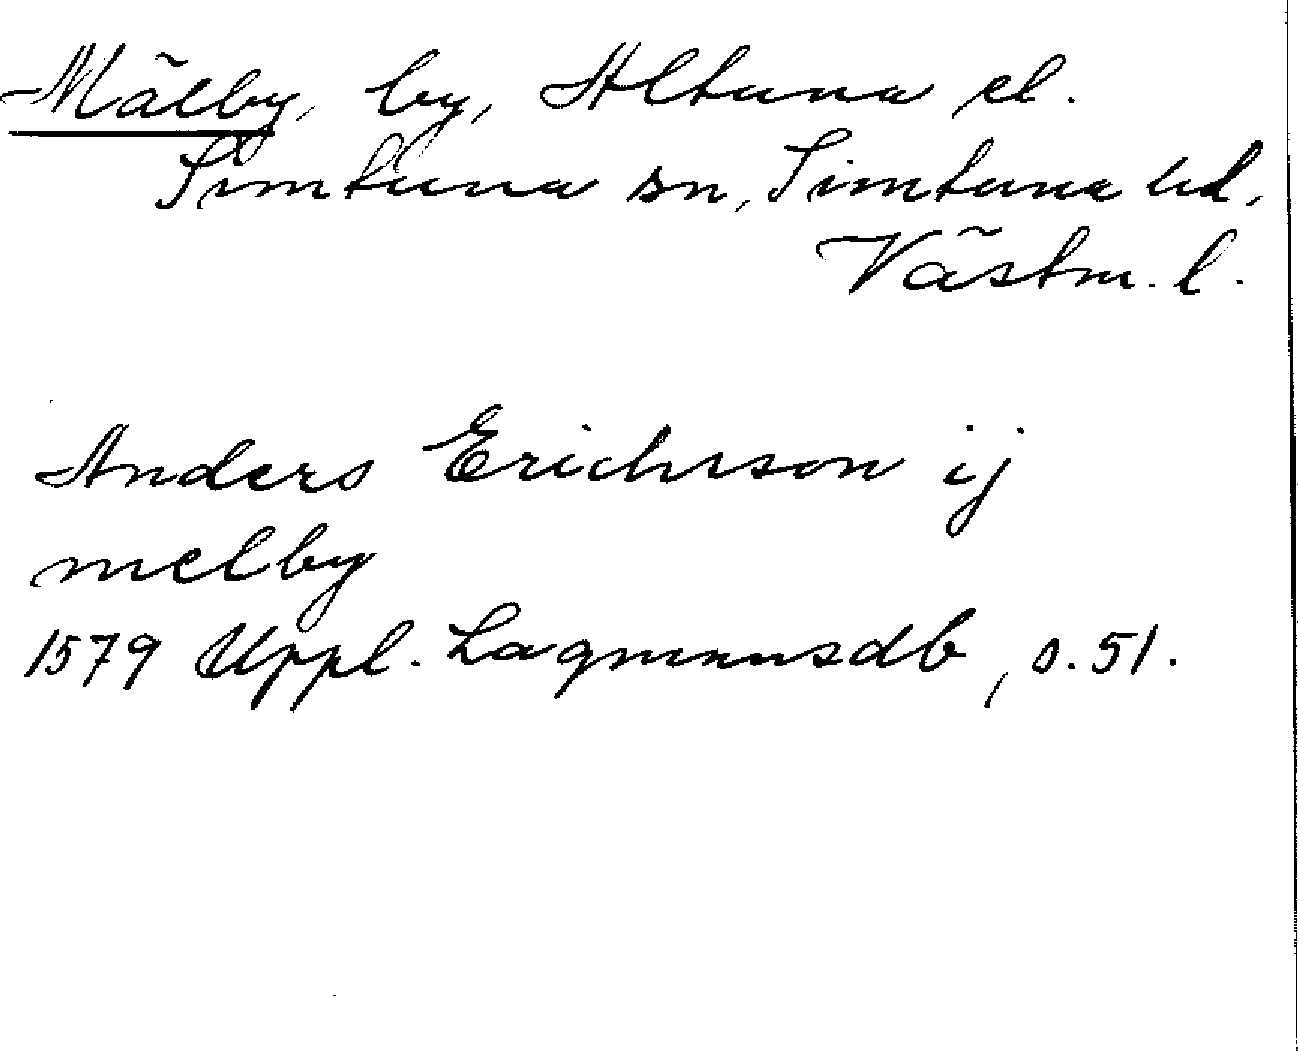 Mälby, by, Altuna el.
Simtuna sn, Simtuna hd,
Västm. l.
Anders Erichsson ij
melby
1579 Uppl. Lagmansdb, s. 51.